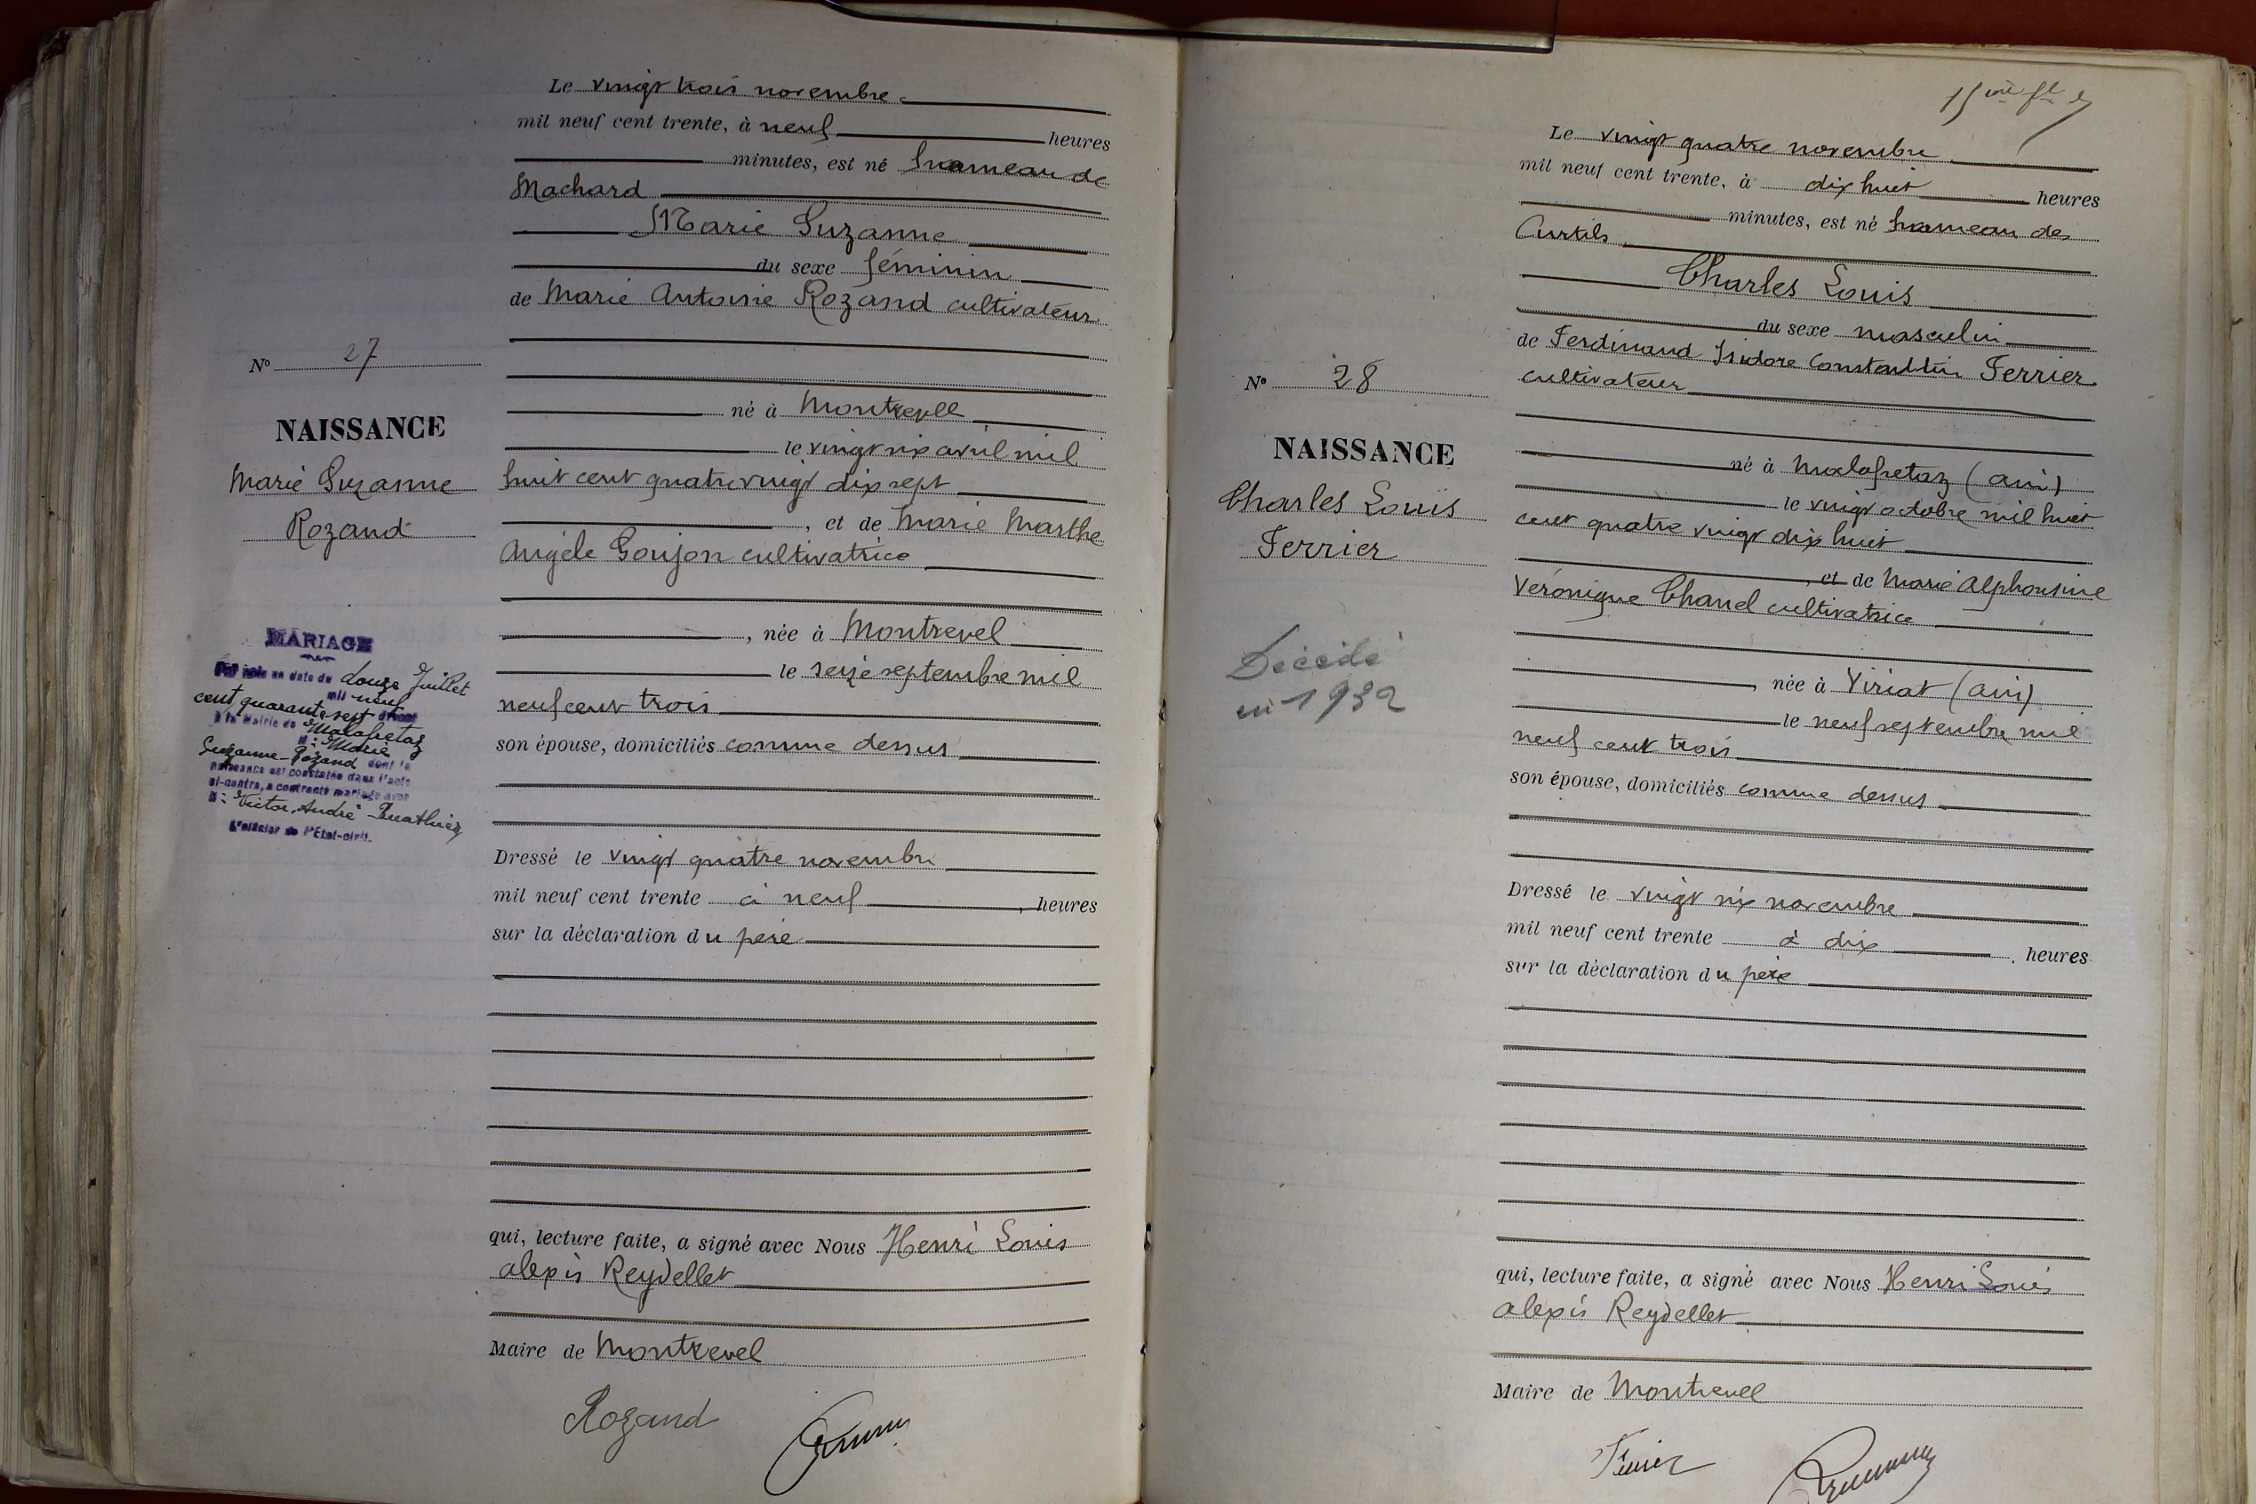 Le vingt trois novembre
mil neuf cent trente, à neuf heures
minutes, est né hameau de
Machard
Marie Suzanne
du sexe féminin
de Marie Antoine Rozand cultivateur
né à Montrevel
le vingt six avril mil
huit cent quatre vingt dix sept
, et de Marie Marthe
Angèle Goujon cultivatrice
, née à Montrevel
le seize septembre mil
neuf cent trois
son épouse, domiciliés comme dessus
Dressé le vingt quatre novembre
mil neuf cent trente à neuf , heures
sur la déclaration du père
qui, lecture faite, a signé avec Nous Henri Louis
Alexis Reydellet
Maire de Montrevel
Rozand
N° 27
NAISSANCE
Marie Suzanne
Rozand
MARIAGE
en date du douze Juillet
mil neuf
cent quarante sept
à la Mairie de Malafretaz
M: Marie
Suzanne Rozand dont la
naissance est constatée dans l'acte
ci-contre, a contracté mariage avec
M: Victor, André
L'officier de l'Etat-civil.
Le vingt quatre novembre
mil neuf cent trente, à dix huit heures
minutes, est né hameau des
Curtils
Charles Louis
du sexe masculin
de Ferdinand Isidore Constantin Ferrier
cultivateur
né à Malafretaz (Ain)
le vingt octobre mil huit
cent quatre vingt dix huit
, et de Marie Alphonsine
Véronique Chanel cultivatrice
, née à Viriat (Ain)
le neuf septembre mil
neuf cent trois
son épouse, domiciliés comme dessus
Dressé le vingt six novembre
mil neuf cent trente à dix , heures
sur la déclaration du père
qui, lecture faite, a signé avec Nous Henri Louis
Alexis Reydellet
Maire de Montrevel
N° 28
NAISSANCE
Charles Louis
Ferrier
Décédé
en 1932